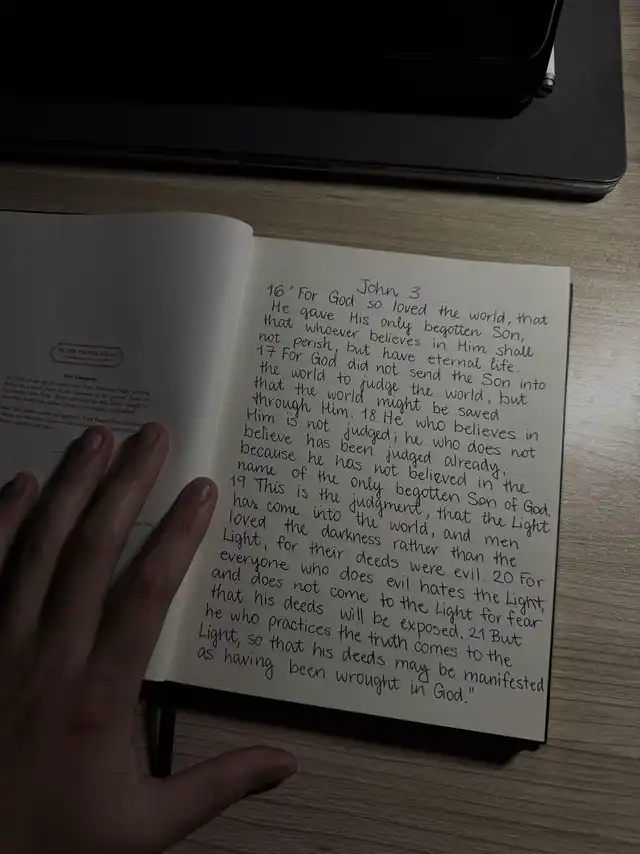 John 3
16 "For God so loved the world, that
He gave His only begotten Son,
that whoever believes in Him shall
not perish, but have eternal life.
17 For God did not send the Son into
the world to judge the world, but
that the world might be saved
through Him. 18 He who believes in
Him is not judged; he who does not
believe has been judged already,
because he has not believed in the
name of the only begotten Son of God.
19 This is the judgment, that the Light
has come into the world, and men
loved the darkness rather than the
Light, for their deeds were evil. 20 For
everyone who does evil hates the Light,
and does not come to the Light for fear
that his deeds will be exposed. 21 But
he who practices the truth comes to the
Light, so that his deeds may be manifested
as having been wrought in God."